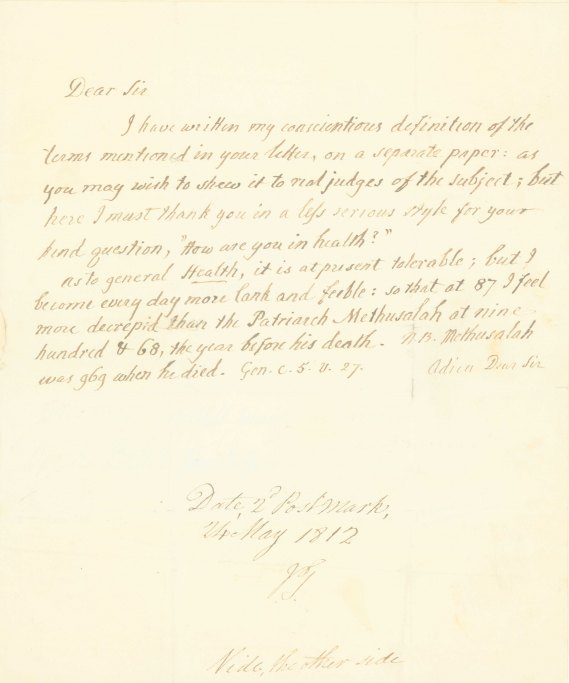 Dear Sir
I have written my conscientious definition of the
terms mentioned in your letter, on a separate paper: as
you may wish to shew it to real judges of the subject; but
here I must thank you in a less serious style for your
kind question, "How are you in health?"
As to general Health, it is at present tolerable; but I
become every day more lank and feeble: so that at 87 I feel
more decrepid than the Patriarch Methusalah at nine
hundred & 68, the year before his death. N.B. Methusalah
was 969 when he died. Gen. c. 5. v. 27. Adieu Dear Sir
Date, 2d Post Mark,
24 May 1812
Vide, the other side